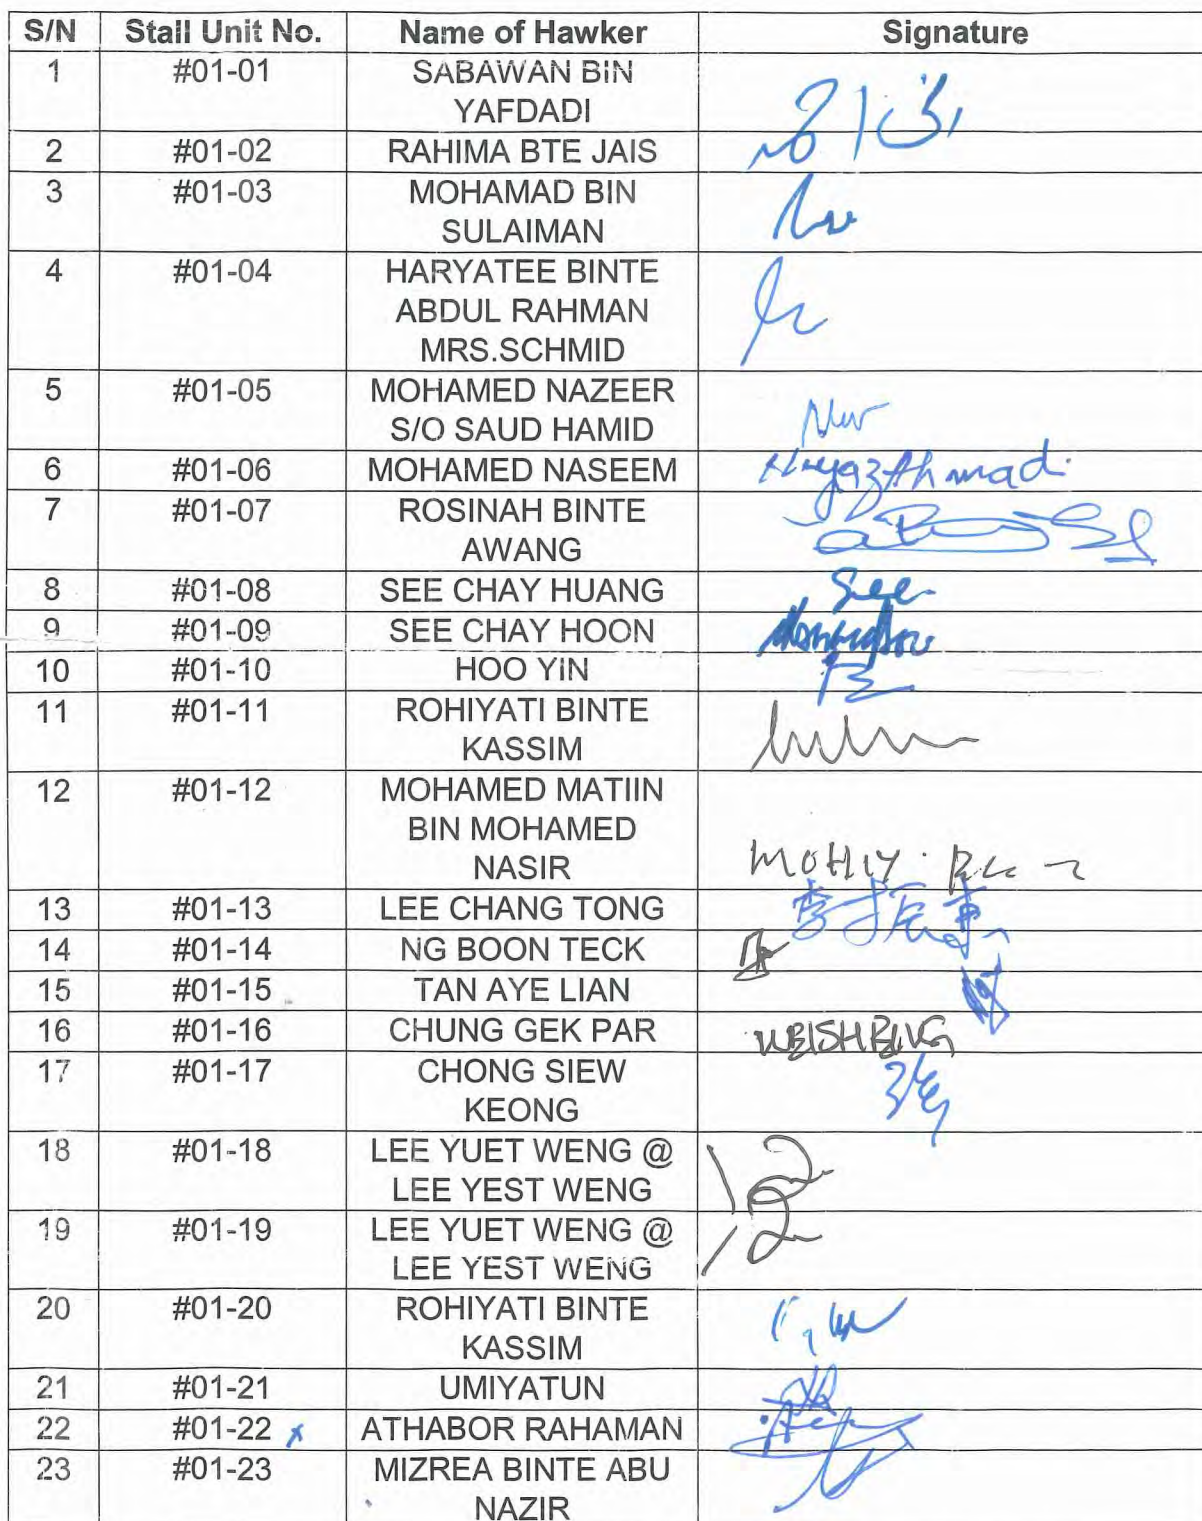 S/N Stall Unit No. Name of Hawker Signature
1 #01-01 SABAWAN BIN
YAFDADI
2 #01-02 RAHIMA BTE JAIS
3 #01-03 MOHAMAD BIN
SULAIMAN
4 #01-04 HARYATEE BINTE
ABDUL RAHMAN
MRS.SCHMID
5 #01-05 MOHAMED NAZEER
S/O SAUD HAMID
6 #01-06 MOHAMED NASEEM
7 #01-07 ROSINAH BINTE
AWANG
8 #01-08 SEE CHAY HUANG See
9 #01-09 SEE CHAY HOON
10 #01-10 HOO YIN
11 #01-11 ROHIYATI BINTE
KASSIM
12 #01-12 MOHAMED MATIIN
BIN MOHAMED
NASIR
13 #01-13 LEE CHANG TONG
14 #01-14 NG BOON TECK
15 #01-15 TAN AYE LIAN
16 #01-16 CHUNG GEK PAR
17 #01-17 CHONG SIEW
KEONG
18 #01-18 LEE YUET WENG @
LEE YEST WENG
19 #01-19 LEE YUET WENG @
LEE YEST WENG
20 #01-20 ROHIYATI BINTE
KASSIM
21 #01-21 UMIYATUN
22 #01-22 x ATHABOR RAHAMAN
23 #01-23 MIZREA BINTE ABU
NAZIR